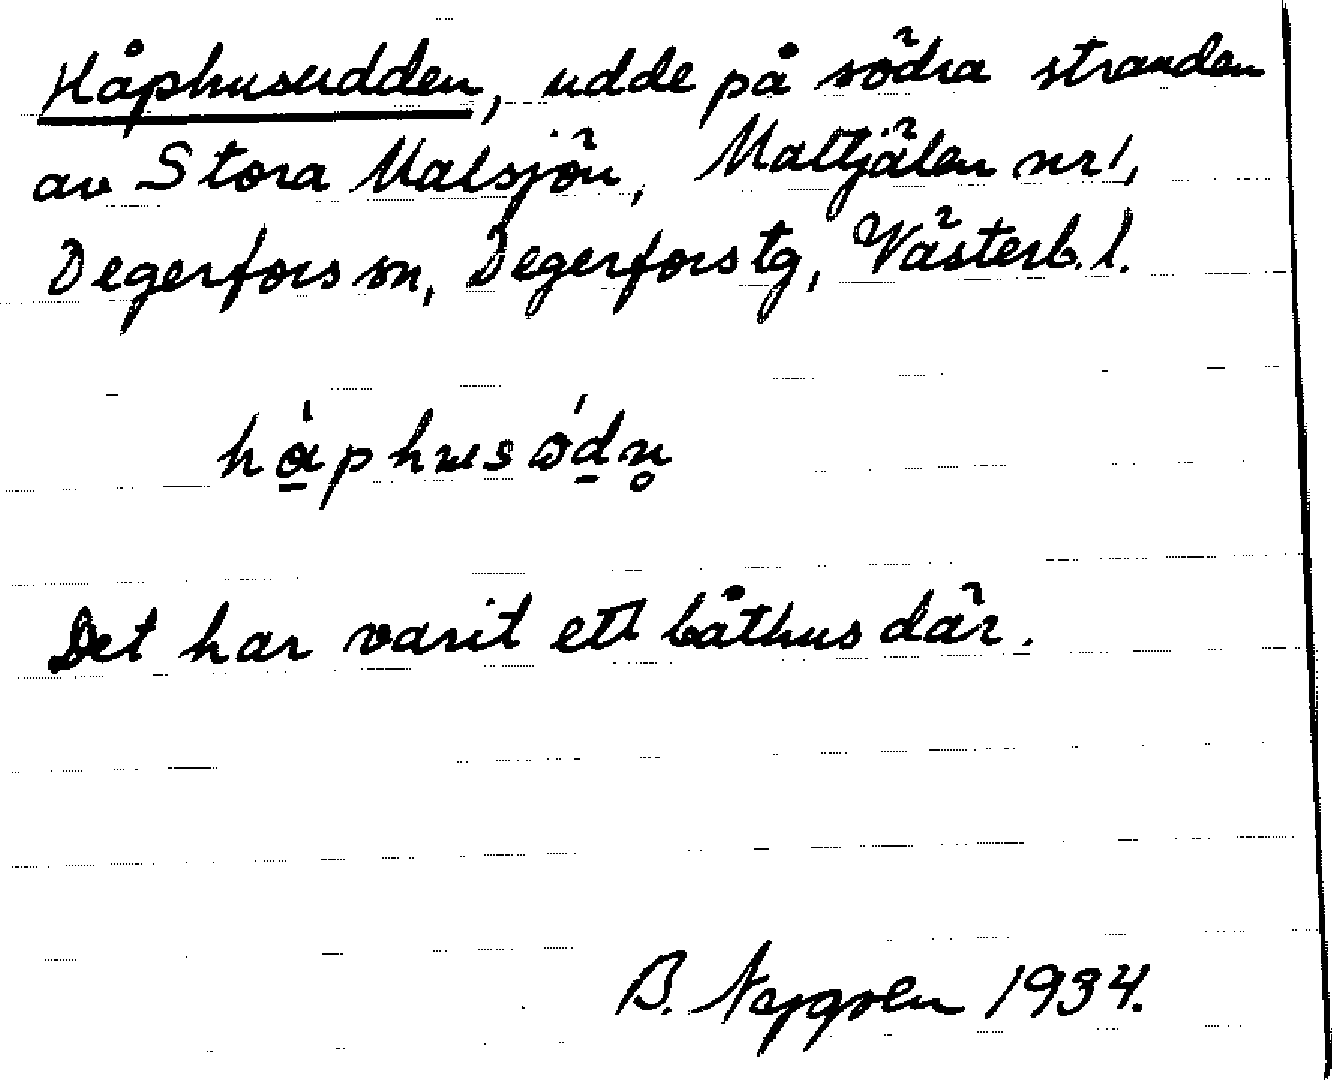 Håphusudden, udde på södra stranden
av Stora Malsjön, Maltjälen nr 1,
Degerfors sn, Degerfors tg, Västerb. l.
håphusödn̥
Det har varit ett båthus där.
B. Nygren 1934.